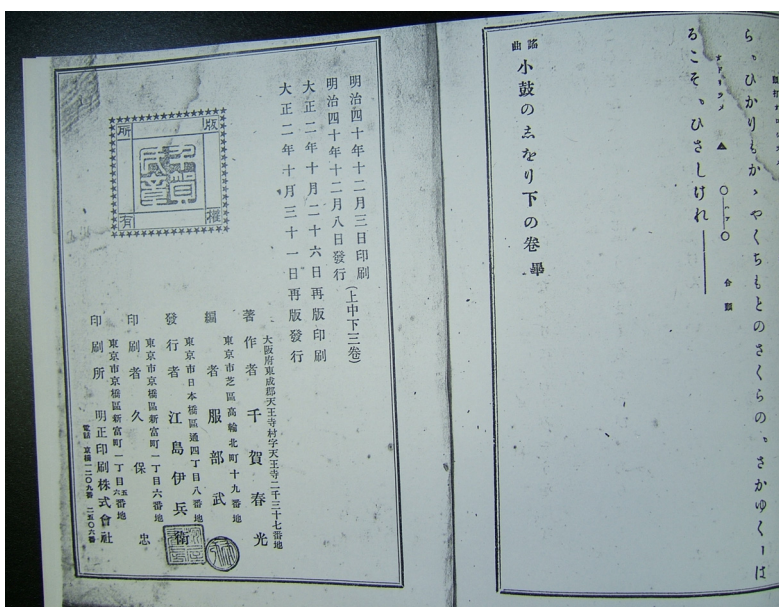 ら。ひかりもかゝやくちもとのさくらの。さかゆくーは
るこそ。ひさしけれ
合頭
謠曲 小鼓のゑをり下の卷 畢
明治四十年十二月三日印刷
明治四十年十二月八日發行(上中下三卷)
大正二年十月二十六日再版印刷
大正二年十月三十一日再版發行
版權所有
千賀氏章
大阪府東成郡天王寺村字天王寺二千三十七番地
著作者 千賀春光
東京市芝區高輪北町十九番地
編者 服部武
東京市日本橋區通四丁目八番地
發行者 江島伊兵衛
東京市京橋區新富町一丁目六番地
印刷者 久保忠
東京市京橋區新富町一丁目五六番地
印刷所 明正印刷株式會社
電話 京橋一二〇九番 二五〇六番